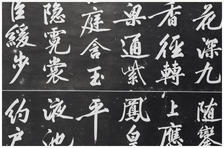 花深九
香徑轉
梁通紫
庭含玉
隱霓裳
臣緩步
隨鸞
上應
鳳皇
平
液池
約戶